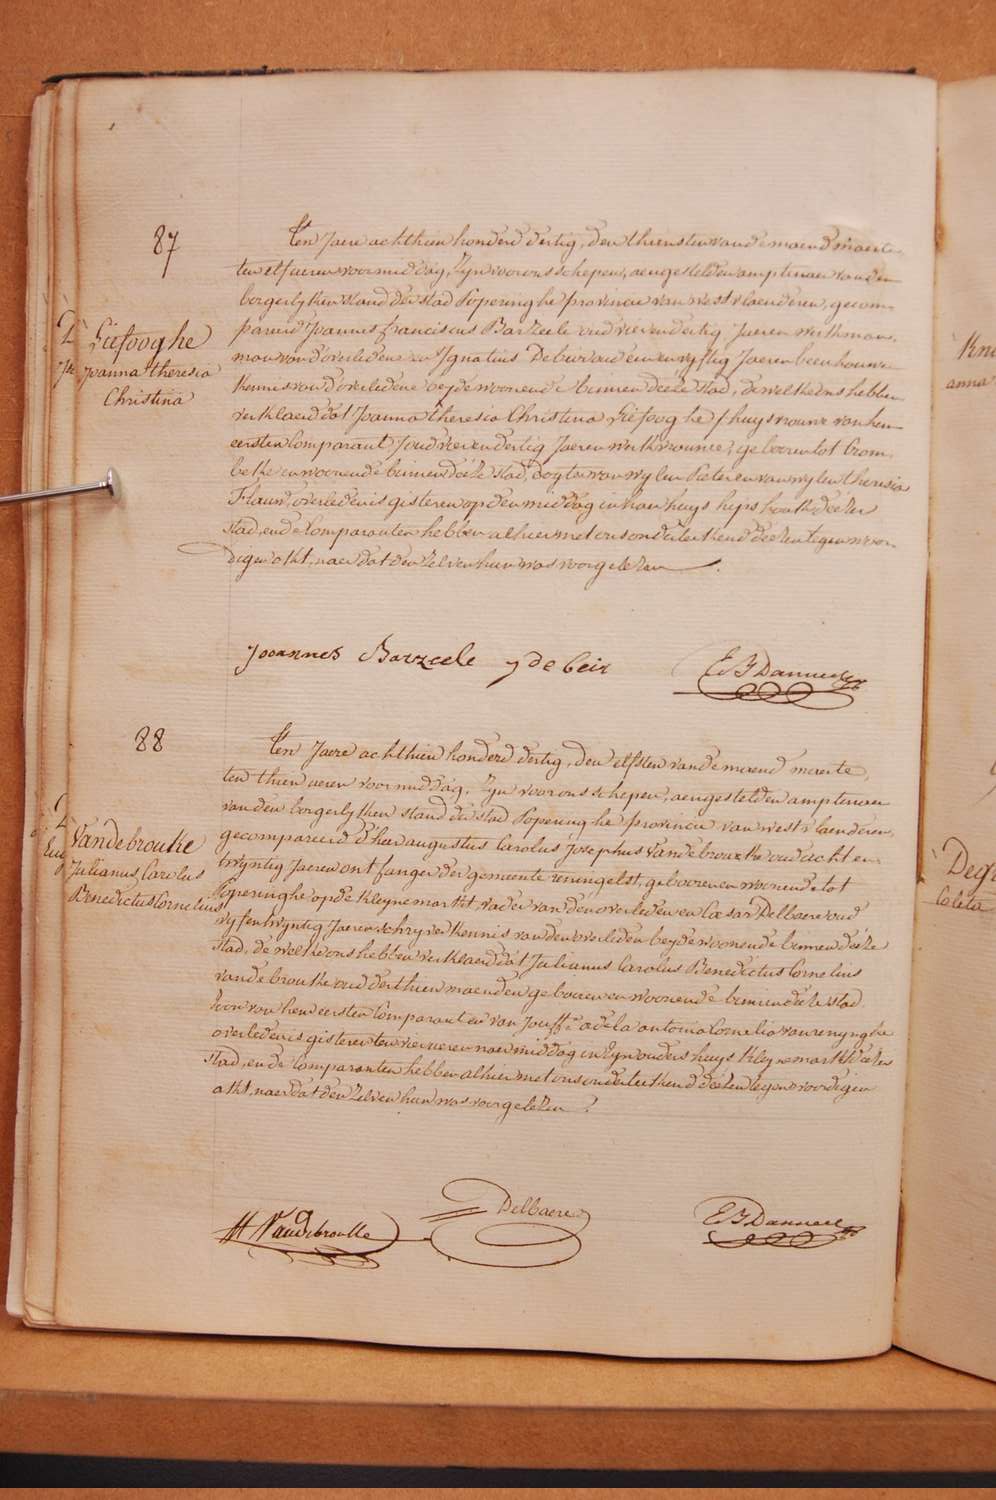 87
Liefooghe
Joanna theresia
Christina
Ten Jaere achthien honderd dertig, den thiensten van de maend maerte
ten elf ueren voormiddag, Zyn voor ons schepen, aengestelden amptenaer van den
borgerlyken stand der stad Poperinghe provincie van westvlaenderen, gecom-
pareerd Joannes franciscus Barzeele oud vierendertig Jaeren werkman,
man van d'overledene en Ignatius Debeir oud eenenvyftig Jaeren beenhouwer
kennis van d'overledene beyde woonende binnen deeze stad, de welke ons hebben
verklaerd dat Joanna theresia Christina Liefooghe huysvrouwe van hun
eersten Comparant, oud vierendertig Jaeren werkvrouwe, gebooren tot Crom-
beke en woonende binnen deeze stad, dogter van wylen Pieter en van wylen theresia
overleden is gisteren op den middag in haer huys hipshoek deezer
stad, ende Comparanten hebben alhier met ons onderteekend deezen tegenwoor-
digen akt, naer dat den zelven hun was voorgelezen.
Joannes Barzeele J de beir E J Danneel
88
Vandebrouke
Julianus Carolus
Benedictus Cornelius
Ten Jaere achthien honderd dertig, den elfsten van de maend maerte,
ten thien ueren voormiddag, Zyn voor ons schepen, aengestelden amptenaer
van den borgerlyken stand der stad Poperinghe provincie van westvlaenderen,
gecompareerd d'heer augustus Carolus Josephus Vandebroucke oud acht en
twyntig Jaeren ontfanger der gemeente reningelst, gebooren en woonende tot
Poperinghe op de kleyne markt vader van den overleden en Cæsar Delbaere oud
vyfentwyntig Jaeren schryver kennis van den overleden beyde woonende binnen deeze
stad, de welke ons hebben verklaerd dat Julianus Carolus Benedictus Cornelius
vandebrouke oud derthien maenden gebooren en woonende binnen deeze stad
Zoon van hem eersten Comparant en van Jouffe adela antonia Cornelia vanrenynghe
overleden is gisteren ten vier ueren naermiddag in Zyn ouders huys kleyne markt deezer
stad, ende Comparanten hebben alhier met ons onderteekend deezen tegenwoordigen
akt, naer dat den Zelven hun was voorgelezen.
Vandebroucke Delbaere E J Danneel